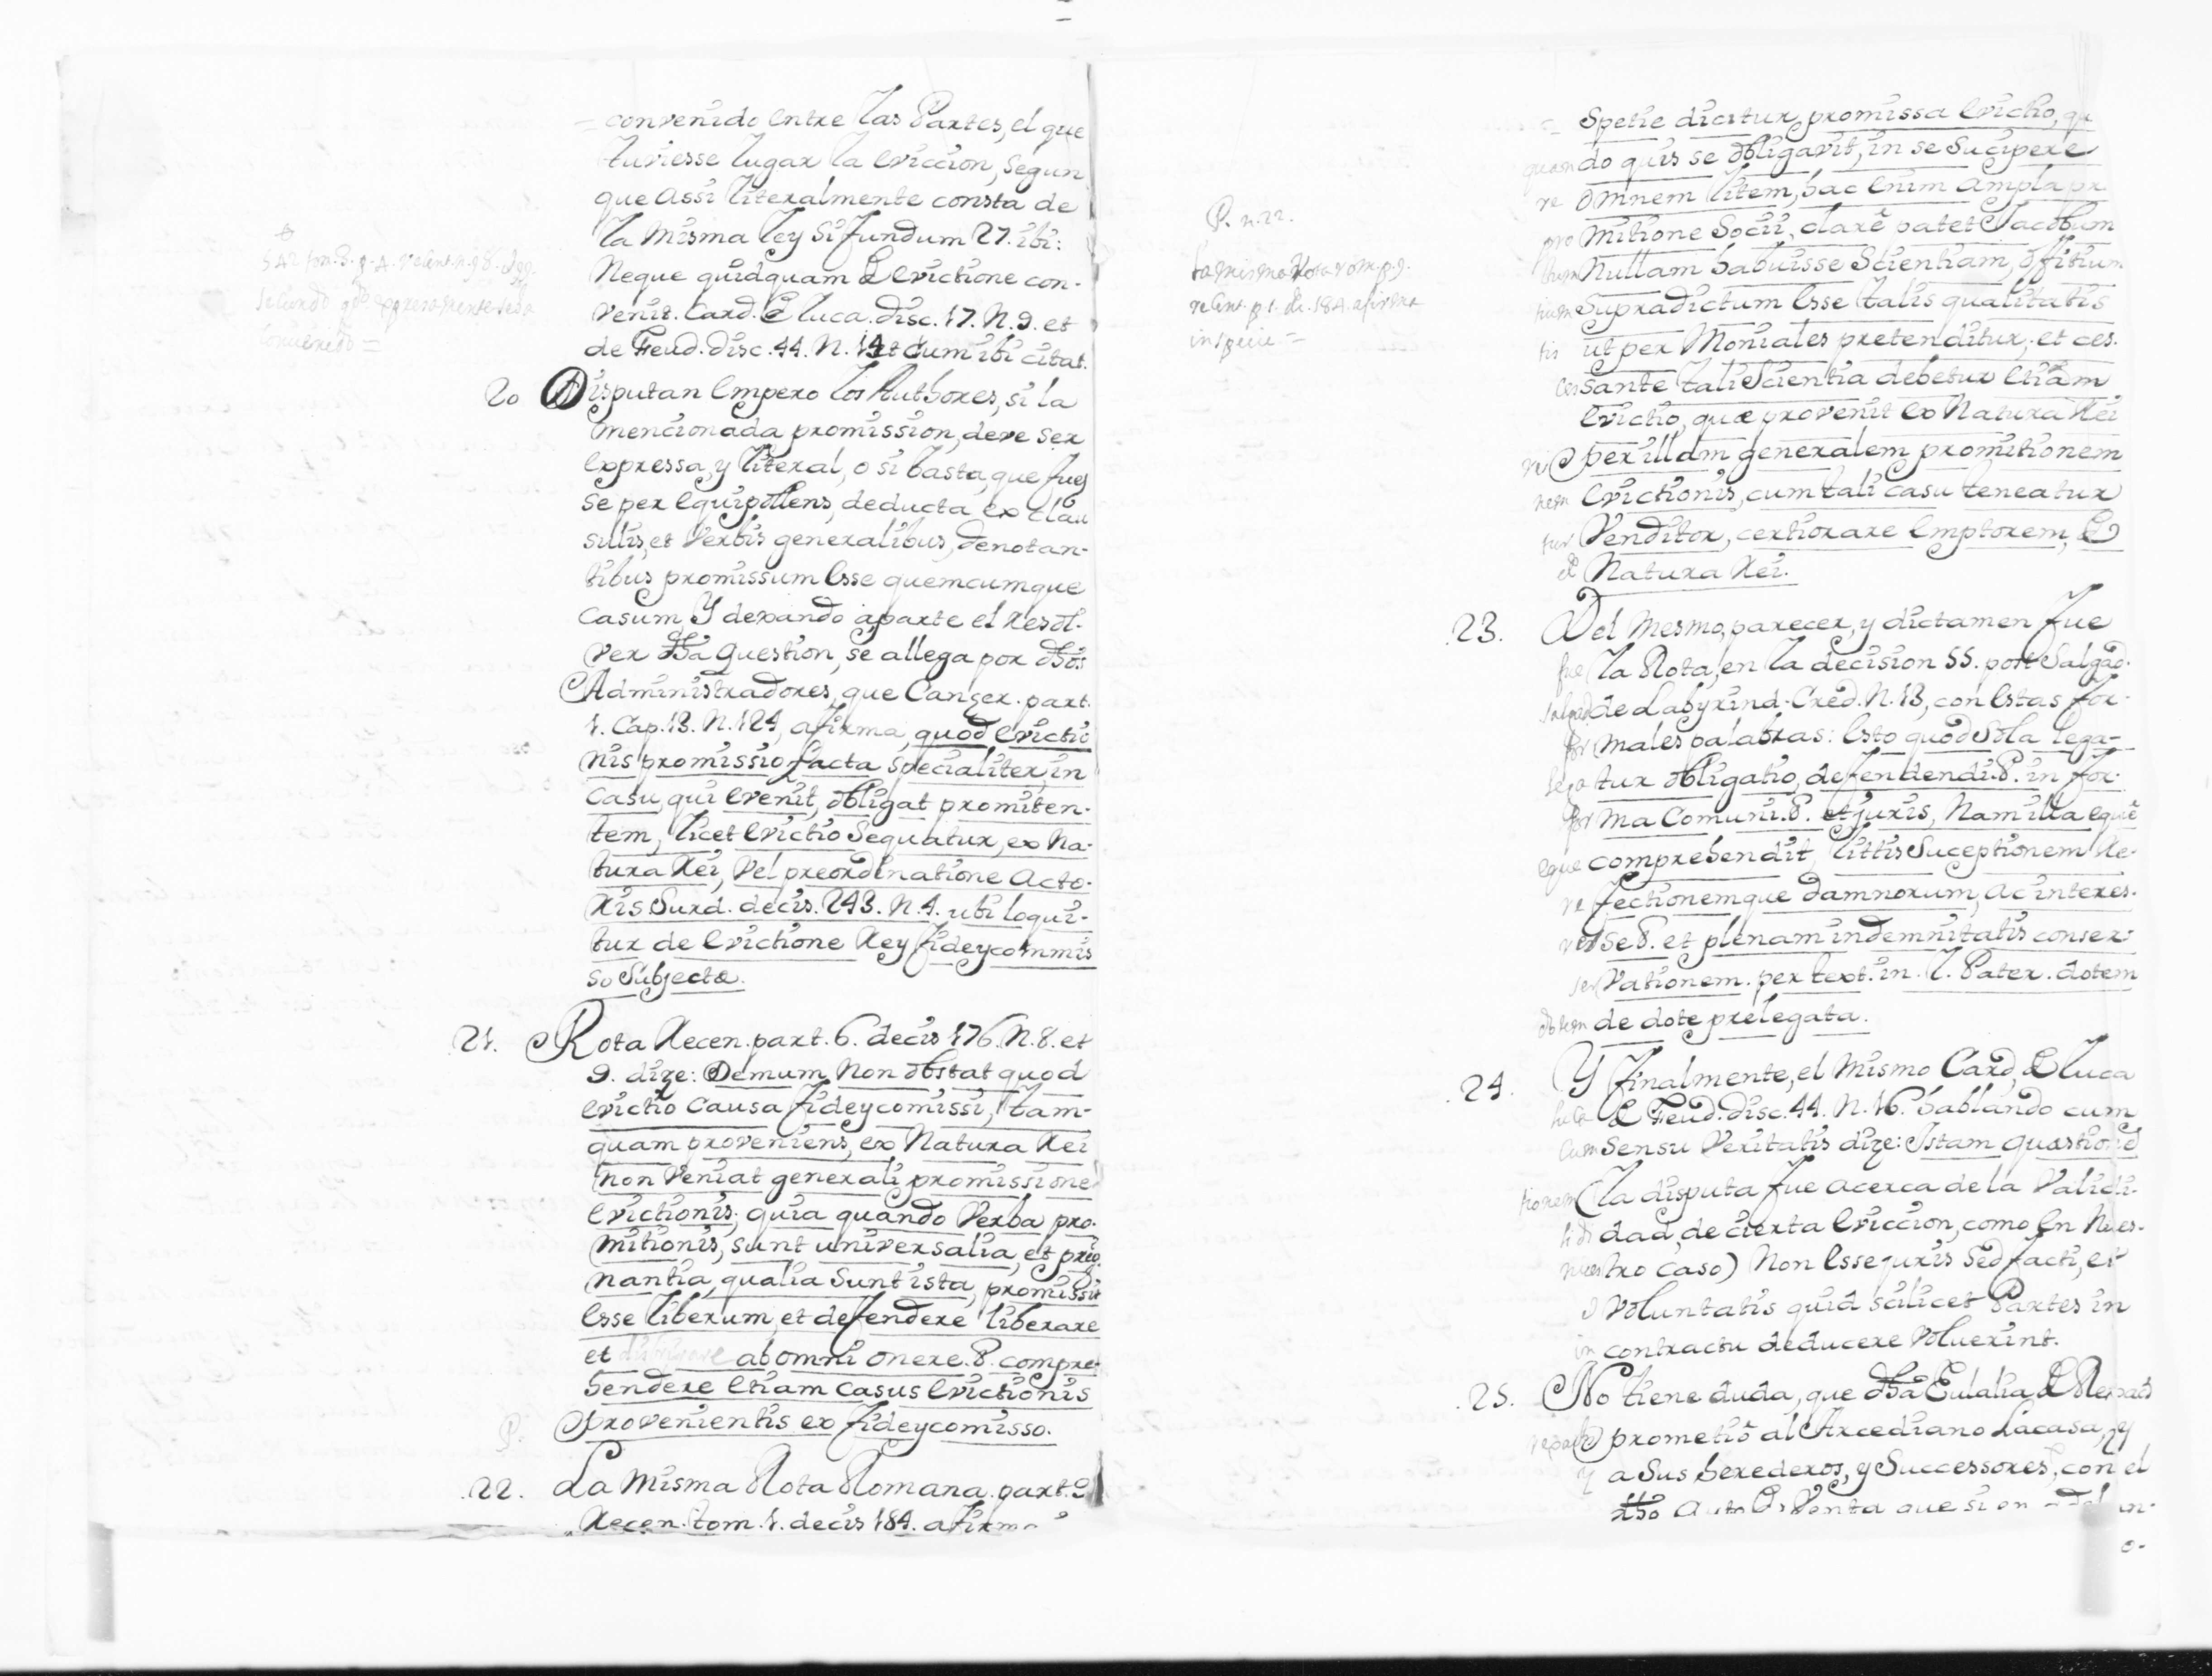 = convenido entre las Partes, el que
tuviesse lugar la eviccion, segun
que assi literalmente consta de
la misma ley si fundum 27. ibi:
Neque quidquam de evictione con-
venit. Card. de luca. disc. 17. N. 9. et
de Feud. disc. 44. N. 14 et cum ibi citat.
20 Disputan empero los Authores, si la
mencionada promission, deve ser
expressa, y literal, o si basta, que fues
se per equipollens, deducta ex clau
sulis, et verbis generalibus, denotan-
tibus promissum esse quemcumque
casum, Y dexando aparte el resol-
ver dha question, se allega por dhos
Administradores, que Canser. part.
1. Cap. 13. N. 124, afirma, quod evictio
nis promissio facta specialiter, in
casu, qui evenit, obligat promiten-
tem, licet evictio sequatur, ex na-
tura Rei, vel preordinatione acto-
ris Surd. decis. 243. N. 4. ubi loqui-
tur de evictione Rey fideycommis
so subjectæ.
21. Rota Recen. part. 6. decis 176. N. 8. et
9. dize: Demum non obstat quod
evictio causa fideycomissi, tam-
quam proveniens, ex Natura Rei
non veniat generali promissione
evictionis; quia quando verba pro-
mitionis, sunt universalia, et preg-
nantia, qualia sunt ista, promissit
esse liberum, et defendere liberare
et ab omni onere. &. compre-
hendere etiam casus evictionis
provenientis ex fideycomisso.
22. La misma Rota Romana. part. 9
Recen. tom. 1. decis 184. afirma
P. n. 22.
la misma Rota rom. p. 9.
recent. p. 1. de. 184. afirma
in specie =
= Spetie dicitur, promissa evictio, qu
quando quis se obligavit, in se sucipere
re omnem litem, hac enim ampla pr
pro mitione Socii, clarè patet Jacobum
nullam habuisse scientiam, offitium
tium supradictum esse talis qualitatis
tis ut per Moniales pretenditur, et ces-
ces sante tali scientia debetur etiam
evictio, quæ provenit ex Natura Rei
rei per illam generalem promitionem
nem evictionis, cum tali casu teneatur
tur Venditor, certiorare emptorem, de
de Natura Rei.
23. Del mesmo, parecer, y dictamen fue
fue la Rota, en la decision 55. post Salgad.
salgad de Labyrind. Cred. N. 13, con estas for-
for males palabras: esto quod sola lega-
lega tur obligatio, defendendi. &. in for-
for ma comuni. &. et juris, Nam illa eque
eque comprehendit, littis suceptionem Re-
re fectionemque damnorum, ac interes-
se &. et plenam indemnitatis conser-
ser vationem. per text. in. l. Pater. dotem
dotem de dote prelegata.
24. Y finalmente, el mismo Card. de Luca
de Feud. disc. 44. N. 16. hablando cum
cum sensu veritatis dize: Istam quæstio
tionem (la disputa fue acerca de la valídi-
lidi dad, de cierta eviccion, como en nues-
nues tro caso) Non esse juris sed facti, et
voluntatis quid scilicet Partes in
in contractu deducere voluerint.
25. No tiene duda, que dha Eulalia de
prometió al Arcediano Lacasa, y
y a sus herederos, y Successores, con el
dho auto de Venta que si en